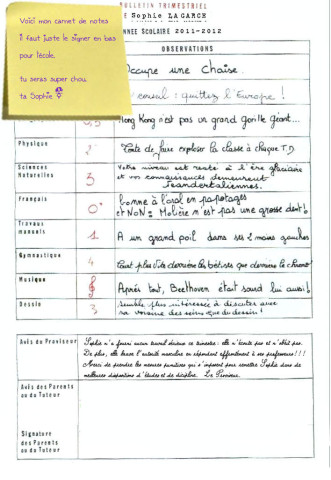 BULLETIN TRIMESTRIEL
Sophie LAGARCE
ANNEE SCOLAIRE 2011-2012
Voici mon carnet de notes
il faut juste le signer en bas
pour l'école.
tu seras super chou.
ta Sophie
OBSERVATIONS
Occupe une chaise.
conseil : quittez l'Europe !
0,5 Hong Kong n'est pas un grand gorille géant...
Physique 2 Tente de faire exploser la classe à chaque T.D.
Sciences Naturelles 3 Votre niveau est resté à l'ère glaciaire
et vos connaissances demeurent
neandertaliennes.
Français 0 bonne à l'oral en papotages
et NON : Molière n'est pas une grosse dent !
Travaux manuels 1 A un grand poil dans ses 2 mains gauches
Gymnastique 4 Court plus vite derrière les bêtises que derrière le chrono !
Musique Après tout, Beethoven était sourd lui aussi !
Dessin 3 semble plus intéressée à discuter avec
sa voisine des seins que du dessin !
Avis du Proviseur Sophie n'a fourni aucun travail durant ce trimestre : elle n'écoute pas et n'obéit pas.
De plus, elle brave l'autorité en répondant effrontément à ses professeurs !!!
Merci de prendre les mesures punitives qui s'imposent pour remettre Sophie dans de
meilleures dispositions d'études et de discipline. Le Proviseur.
Avis des Parents
ou du Tuteur
Signature
des Parents
ou du Tuteur